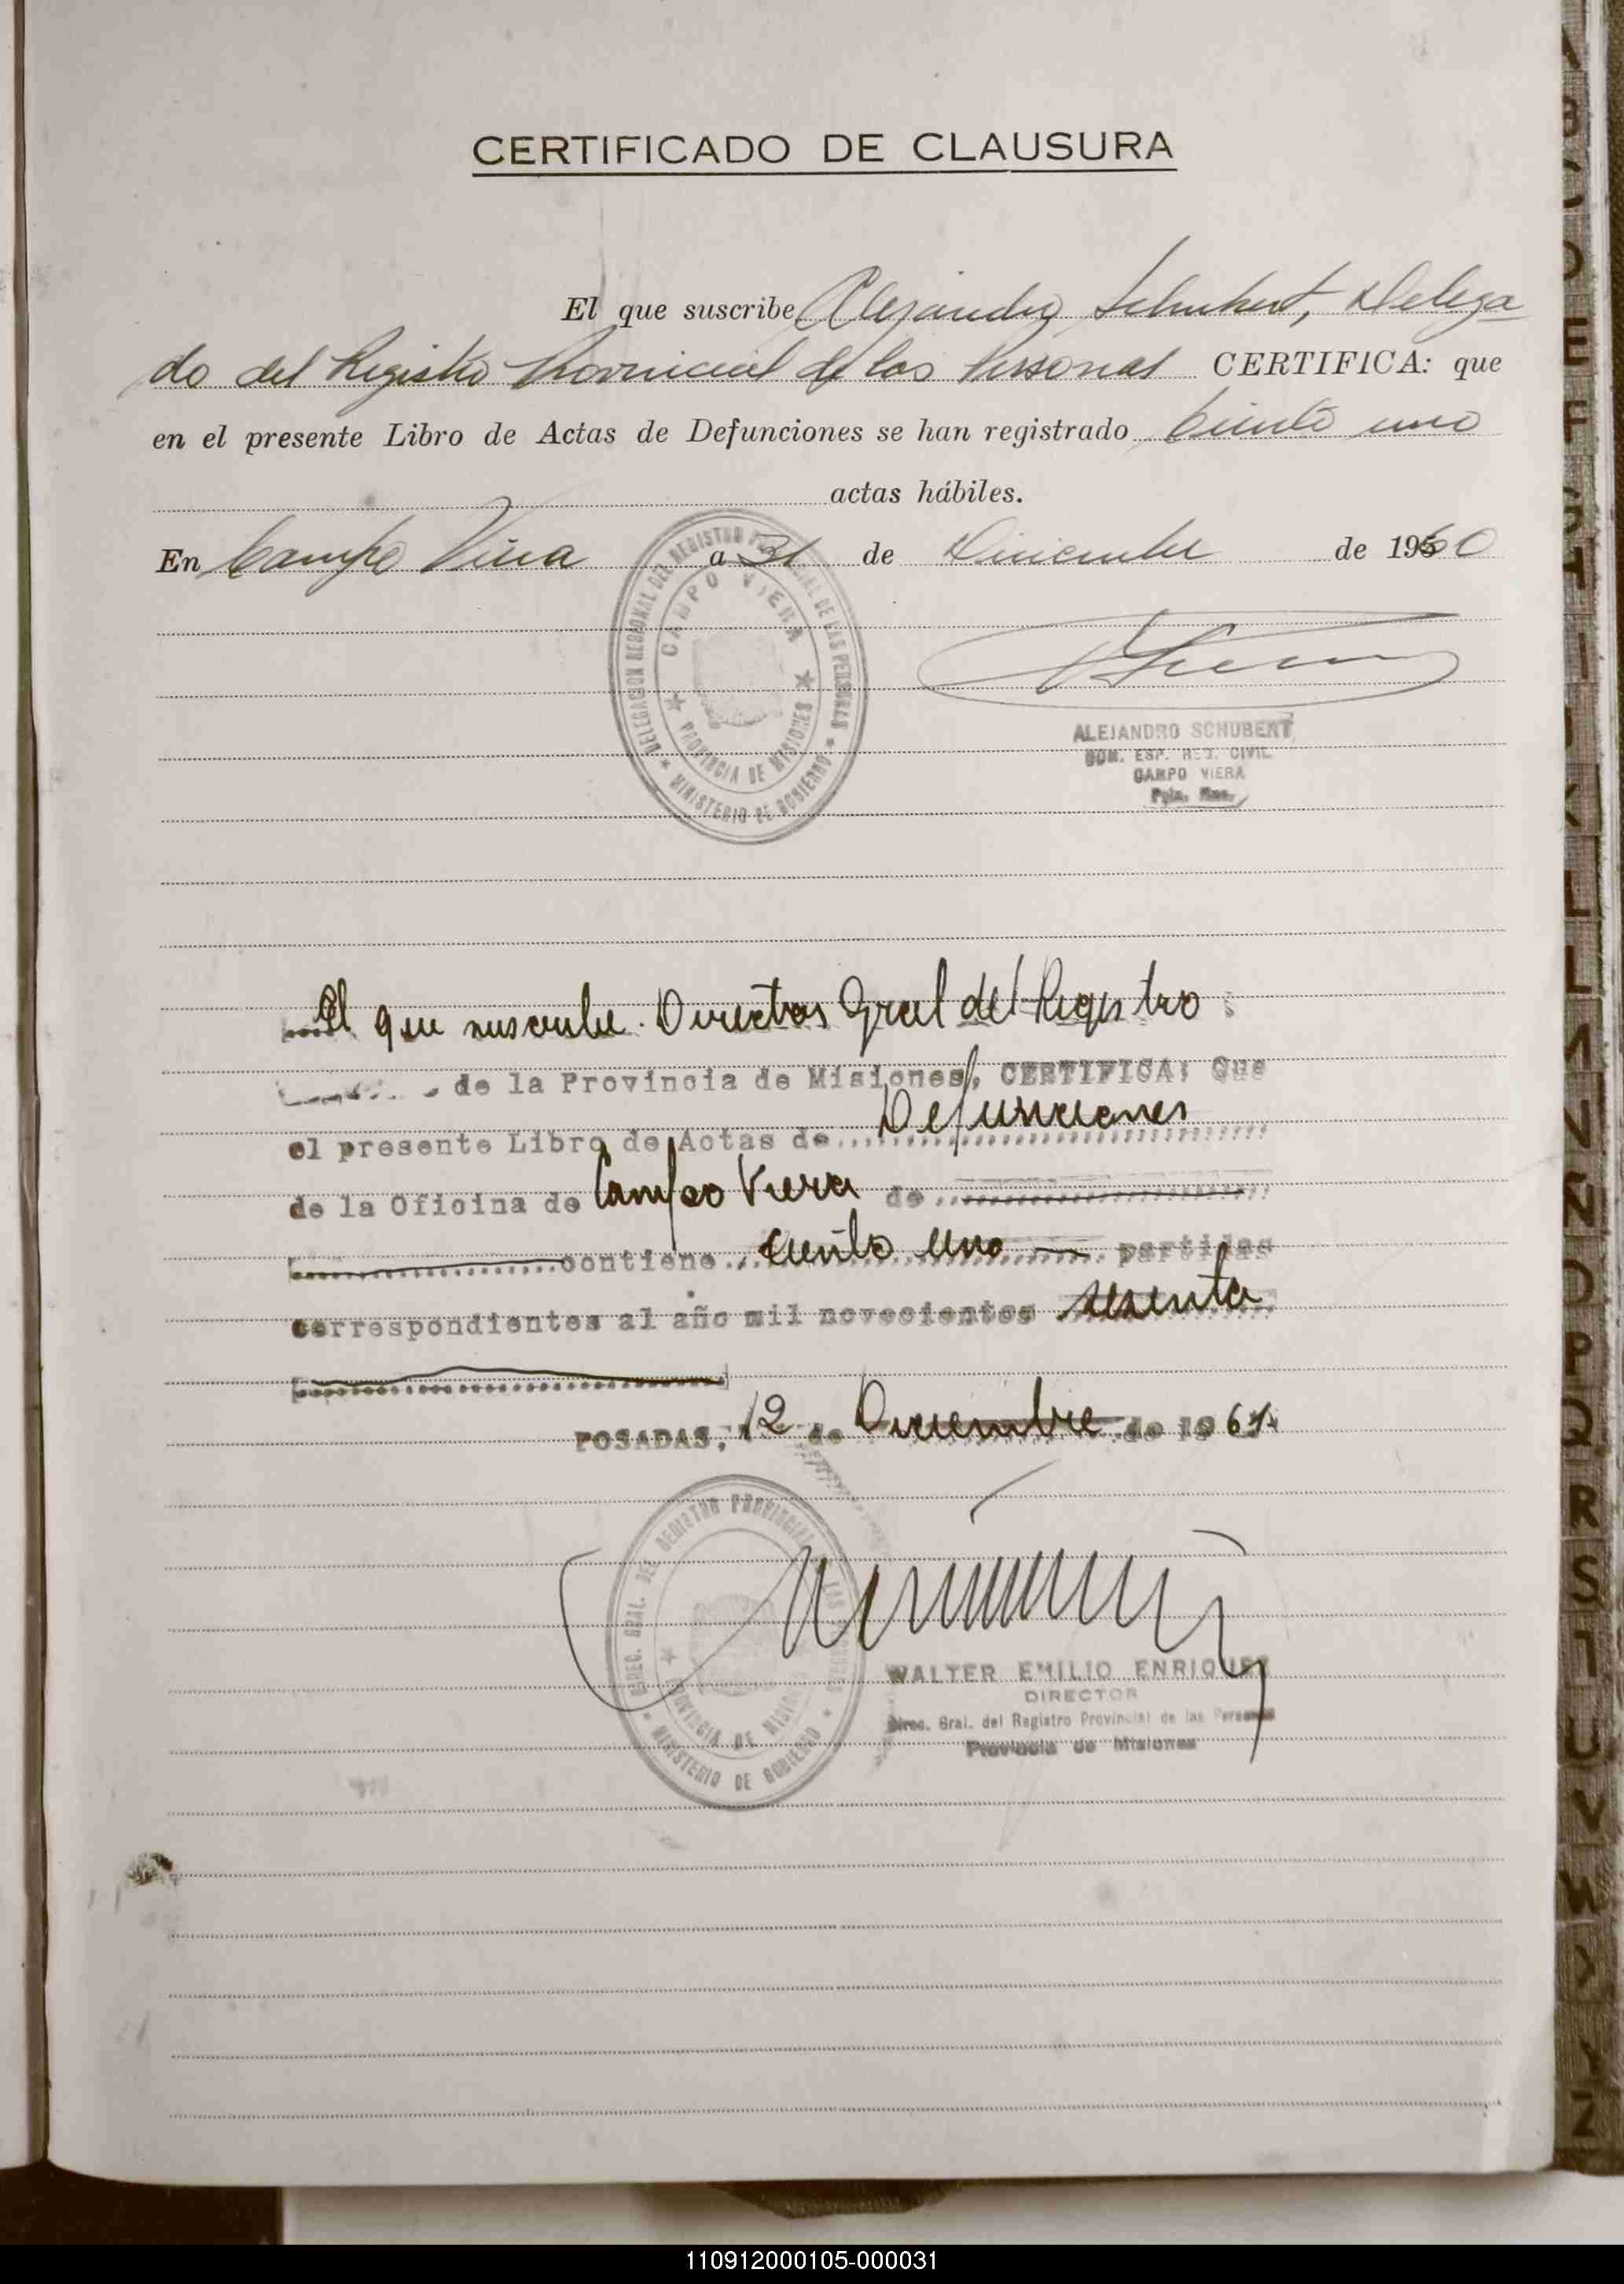 CERTIFICADO DE CLAUSURA
El que suscribe Alejandro Schubert, Delega
do del Registro Provincial de las Personas CERTIFICA: que
en el presente Libro de Actas de Defunciones se han registrado Ciento uno
actas hábiles.
En Campo Viera a 31 de Diciembre de 1960
DELEGACION REGIONAL DEL REGISTRO PROVINCIAL DE LAS PERSONAS
CAMPO VIERA
PROVINCIA DE MISIONES
MINISTERIO DE GOBIERNO
ALEJANDRO SCHUBERT
ESP. REG. CIVIL
CAMPO VIERA
Pcia. Mnes.
El que suscribe Director Gral del Registro
de la Provincia de Misiones, CERTIFICA: Que
el presente Libro de Actas de Defunciones
de la Oficina de Campo Viera de
contiene ciento uno partidas
correspondientes al año mil novecientos sesenta
POSADAS, 12 de Diciembre de 1961
DIREC. GRAL. DEL REGISTRO PROVINCIAL DE LAS PERSONAS
PROVINCIA DE MISIONES
MINISTERIO DE GOBIERNO
WALTER EMILIO ENRIQUEZ
DIRECTOR
Direc. Gral. del Registro Provincial de las Personas
Provincia de Misiones
A
B
C
D
E
F
G
H
I
J
K
L
LL
M
N
Ñ
O
P
Q
R
S
T
U
V
W
X
Y
Z
110912000105-000031